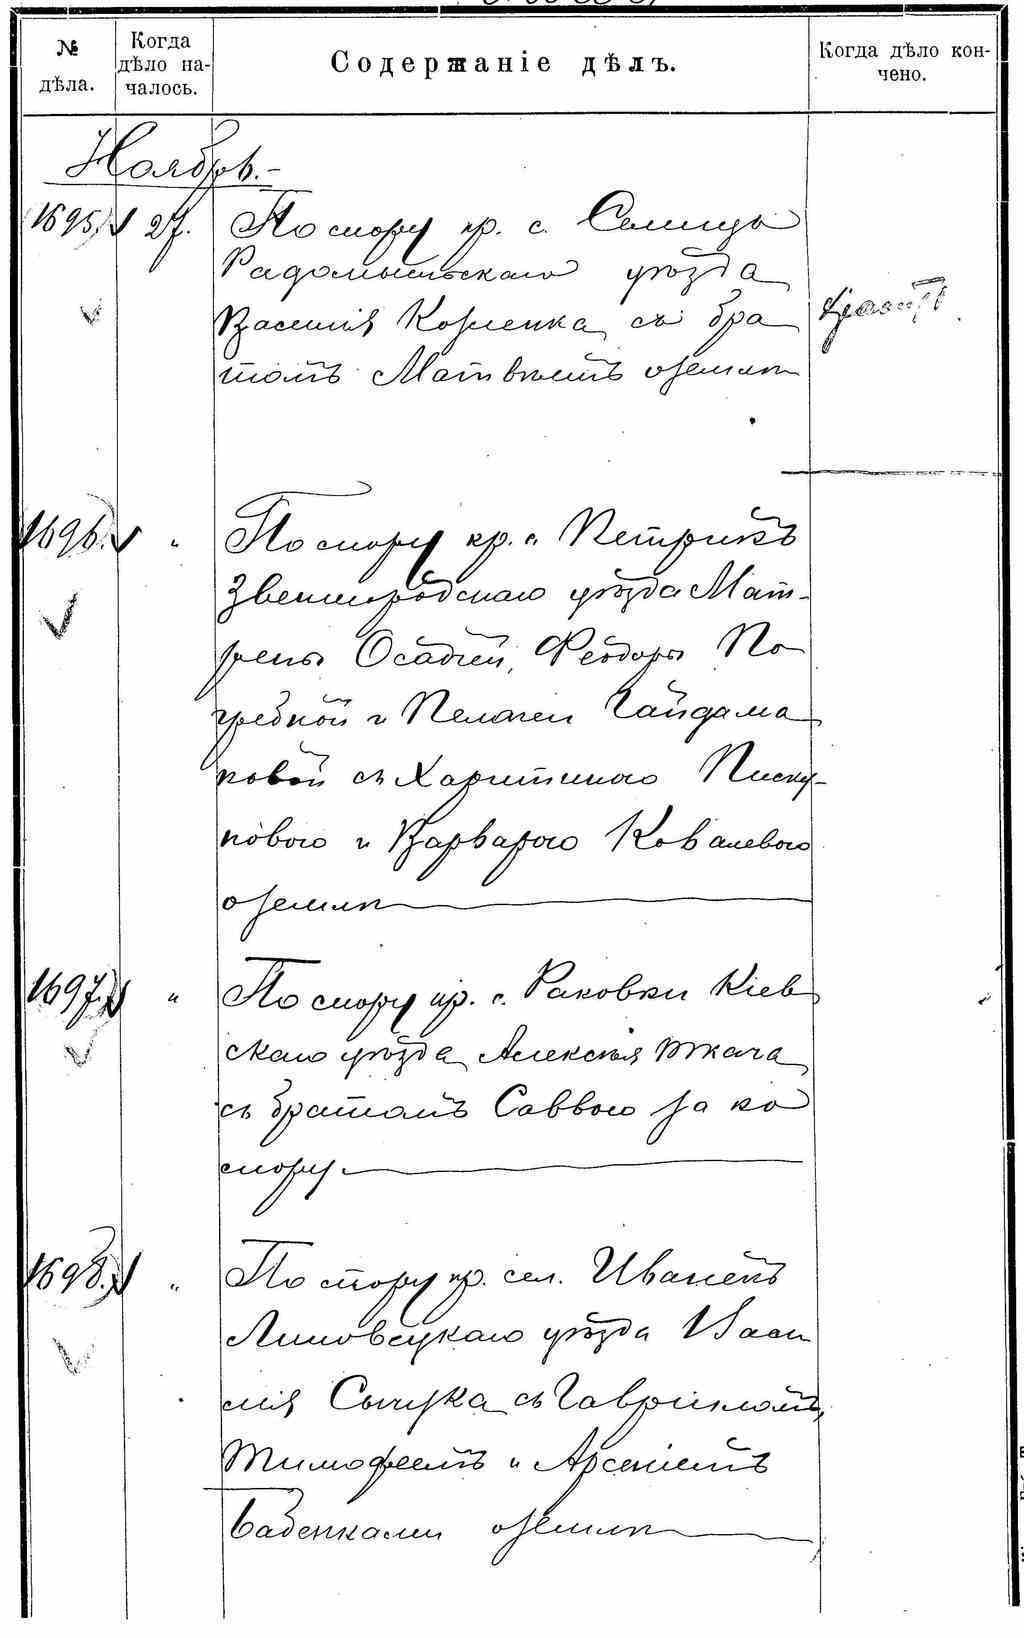 № дѣла.
Когда дѣло началось.
Содержаніе дѣлъ.
Когда дѣло кончено.
Ноябрь.-
1695. 27. По спору кр. с. Селища
Радомысльскаго уѣзда
Василія Козленка съ бра
томъ Матвѣемъ о землѣ
1696. " По спору кр. с. Петрикъ
Звенигородскаго уѣзда Мат-
рены Осадчей, Феодоры По
гребной и Пелагеи Гайдама
ковой съ Харитиною Писку-
новою и Варварою Ковалевою
о землѣ
1697. " По спору кр. с. Раковки Кіев
скаго уѣзда Алексѣя Ткача
съ братомъ Саввою за ко
мору
1698. " По спору кр. сел. Иванекъ
Липовецкаго уѣзда Васи
лія Сычука съ Гавріиломъ,
Тимофеемъ и Арсеніемъ
Бабенками о землѣ